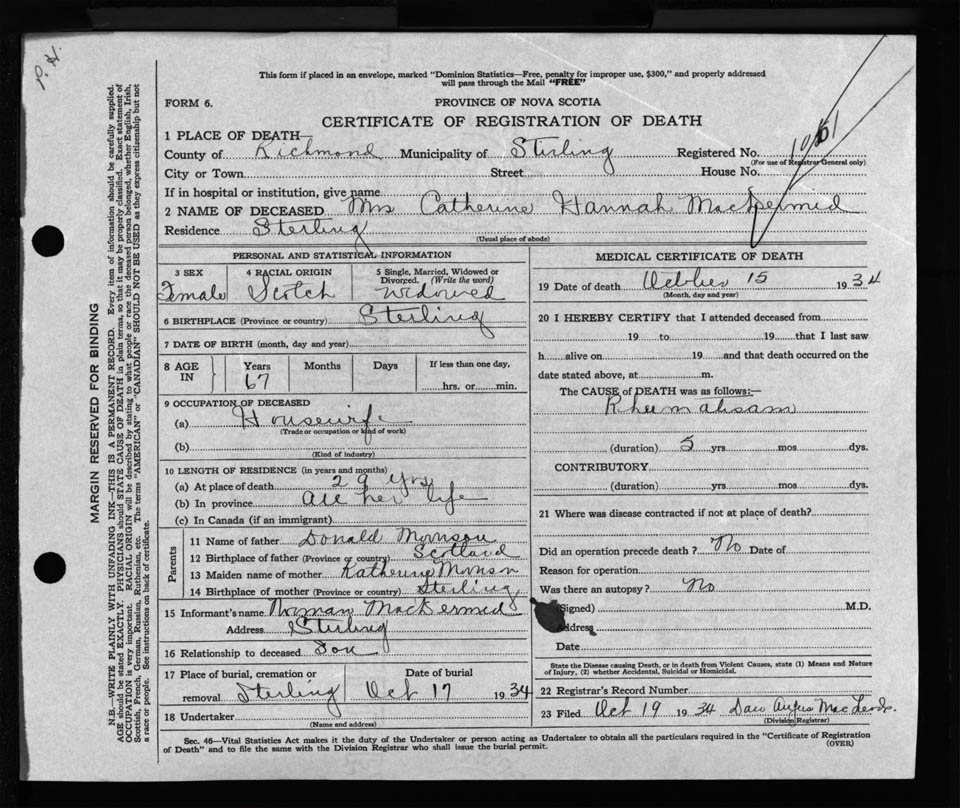 P. H.
This form if placed in an envelope, marked "Dominion Statistics—Free, penalty for improper use, $300," and properly addressed
will pass through the Mail "FREE"
FORM 6.
PROVINCE OF NOVA SCOTIA
CERTIFICATE OF REGISTRATION OF DEATH
1 PLACE OF DEATH—
County of Richmond Municipality of Sterling Registered No.
(For use of Registrar General only)
City or Town Street House No.
If in hospital or institution, give name
2 NAME OF DECEASED Mrs Catherine Hannah MacDermid
Residence Sterling
(Usual place of abode)
PERSONAL AND STATISTICAL INFORMATION
3 SEX 4 RACIAL ORIGIN 5 Single, Married, Widowed or
Divorced. (Write the word)
Female Scotch Widowed
6 BIRTHPLACE (Province or country) Sterling
7 DATE OF BIRTH (month, day and year)
8 AGE IN Years Months Days If less than one day,
67 hrs. or min.
9 OCCUPATION OF DECEASED
(a) Housewife
(Trade or occupation or kind of work)
(b)
(Kind of industry)
10 LENGTH OF RESIDENCE (in years and months)
(a) At place of death 29 yrs
(b) In province all her life
(c) In Canada (if an immigrant)
Parents
11 Name of father Donald Morrison
12 Birthplace of father (Province or country) Scotland
13 Maiden name of mother Katherine
14 Birthplace of mother (Province or country) Sterling
15 Informant's name Norman MacDermid
Address Stirling
16 Relationship to deceased Son
17 Place of burial, cremation or Date of burial
removal Sterling Oct 17 1934
18 Undertaker
(Name and address)
MEDICAL CERTIFICATE OF DEATH
19 Date of death October 15 1934
(Month, day and year)
20 I HEREBY CERTIFY that I attended deceased from
19 to 19 that I last saw
h alive on 19 and that death occurred on the
date stated above, at m.
The CAUSE of DEATH was as follows:—
Rheumatisam
(duration) 5 yrs mos dys.
CONTRIBUTORY
(duration) yrs mos dys.
21 Where was disease contracted if not at place of death?
Did an operation precede death? No Date of
Reason for operation
Was there an autopsy? No
(Signed) M.D.
Address
Date
State the Disease causing Death, or in death from Violent Causes, state (1) Means and Nature
of Injury, (2) whether Accidental, Suicidal or Homicidal.
22 Registrar's Record Number
23 Filed Oct 19 1934 Dan Angus MacLeod
(Division Registrar)
Sec. 46—Vital Statistics Act makes it the duty of the Undertaker or person acting as Undertaker to obtain all the particulars required in the "Certificate of Registration
of Death" and to file the same with the Division Registrar who shall issue the burial permit.
(OVER)
MARGIN RESERVED FOR BINDING
N.B.—WRITE PLAINLY WITH UNFADING INK—THIS IS A PERMANENT RECORD. Every item of information should be carefully supplied.
AGE should be stated EXACTLY. PHYSICIANS should STATE CAUSE OF DEATH in plain terms, so that it may be properly classified. Exact statement of
OCCUPATION is very important. RACIAL ORIGIN will be described by stating to what people or race the deceased person belonged, whether English, Irish,
Scottish, French, German, Russian, Ruthenian, etc. The terms "AMERICAN" or "CANADIAN" SHOULD NOT BE USED as they express citizenship but not
a race or people. See instructions on back of certificate.